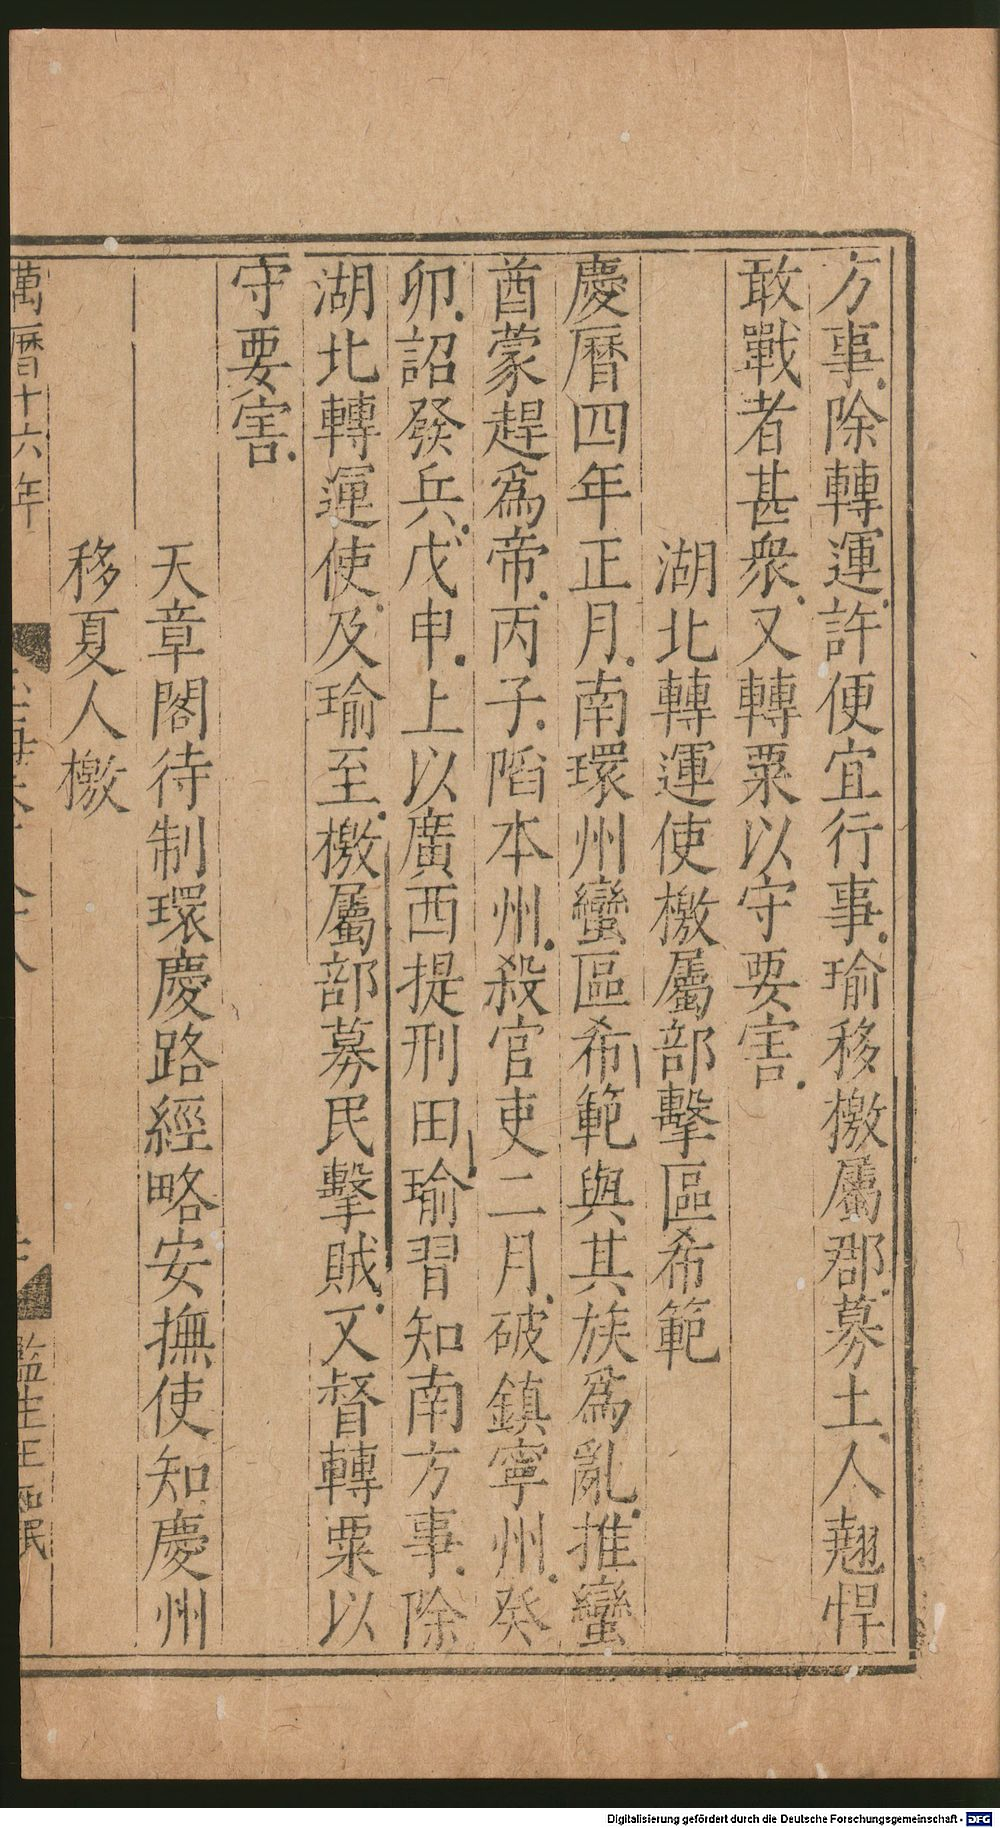 方事除轉運許便宜行事瑜移檄屬郡募土人翹悍
敢戰者甚衆又轉粟以守要害
湖北轉運使檄屬部擊區希範
慶曆四年正月南環州蠻區希範與其族爲亂推蠻
酋蒙趕爲帝丙子陷本州殺官吏二月破鎮寧州癸
卯詔發兵戊申上以廣西提刑田瑜習知南方事除
湖北轉運使及瑜至檄屬部募民擊賊又督轉粟以
守要害
天章閣待制環慶路經略安撫使知慶州
移夏人檄
萬曆十六年
監生王
Digitalisierung gefördert durch die Deutsche Forschungsgemeinschaft - DFG